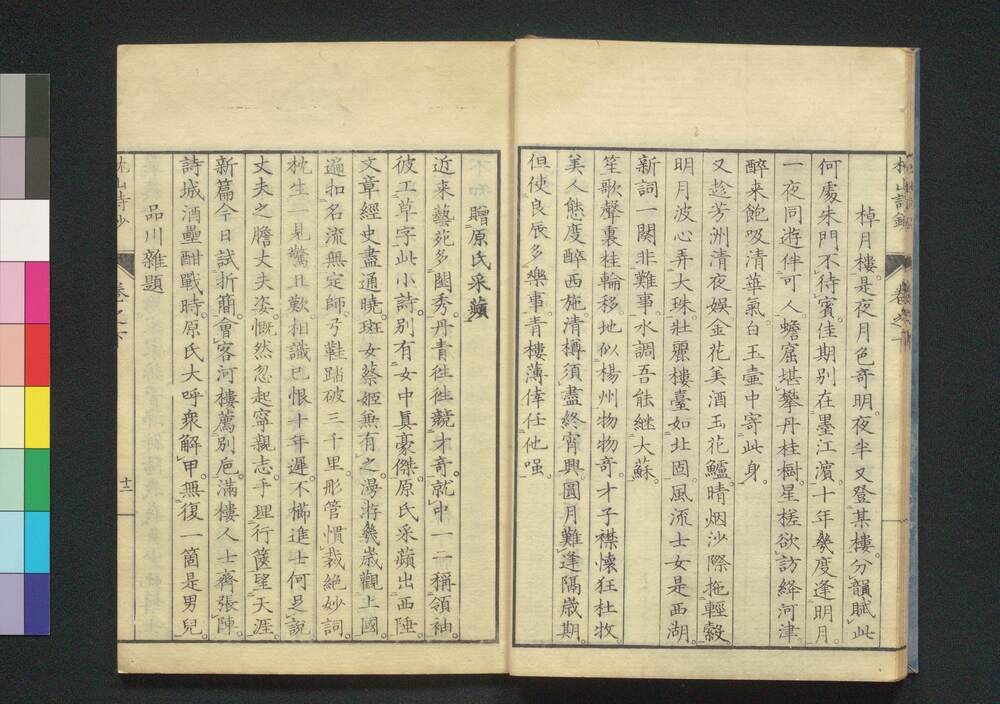 棹月樓。是夜月色奇明。夜半又登某樓。分韻賦此
何處朱門不待賓。佳期別在墨江濱。十年幾度逢明月。
一夜同遊伴可人。蟾窟堪攀丹桂樹。星槎欲訪絳河津。
醉来飽吸清華氣。白玉壷中寄此身。
又趁芳洲清夜娯。金花美酒玉花鱸。晴烟沙際拖輕縠。
明月波心弄大珠。壯麗樓臺如北固。風流士女是西湖。
新詞一闋非難事。水調吾能継大蘇。
笙歌聲裏桂輪移。地似楊州物物奇。才子襟懷狂杜牧。
美人態度醉西施。清樽須盡終宵興。圓月難逢隔歳期。
但使良辰多樂事。青樓薄倖任他嗤。
贈原氏采蘋
近来藝苑多閨秀。丹青徃徃競才奇。就中一二稱領袖。
彼工草字此小詩。別有女中眞豪傑。原氏采蘋出西陲。
文章經史盡通曉。班女蔡姬兼有之。漫游幾歳觀上國。
遍扣名流無定師。弓鞋踏破三千里。彤管慣裁絶妙詞。
枕生一見驚且歎。相識已恨十年遲。不櫛進士何足說
丈夫之膽丈夫姿。慨然忽起寧親志。手理行篋望天涯。
新篇今日試折簡。會客河樓薦別巵。滿樓人士齊張陣。
詩城酒壘酣戰時。原氏大呼衆解甲。無復一箇是男兒。
品川雜題
枕山詩鈔
卷之下
十二